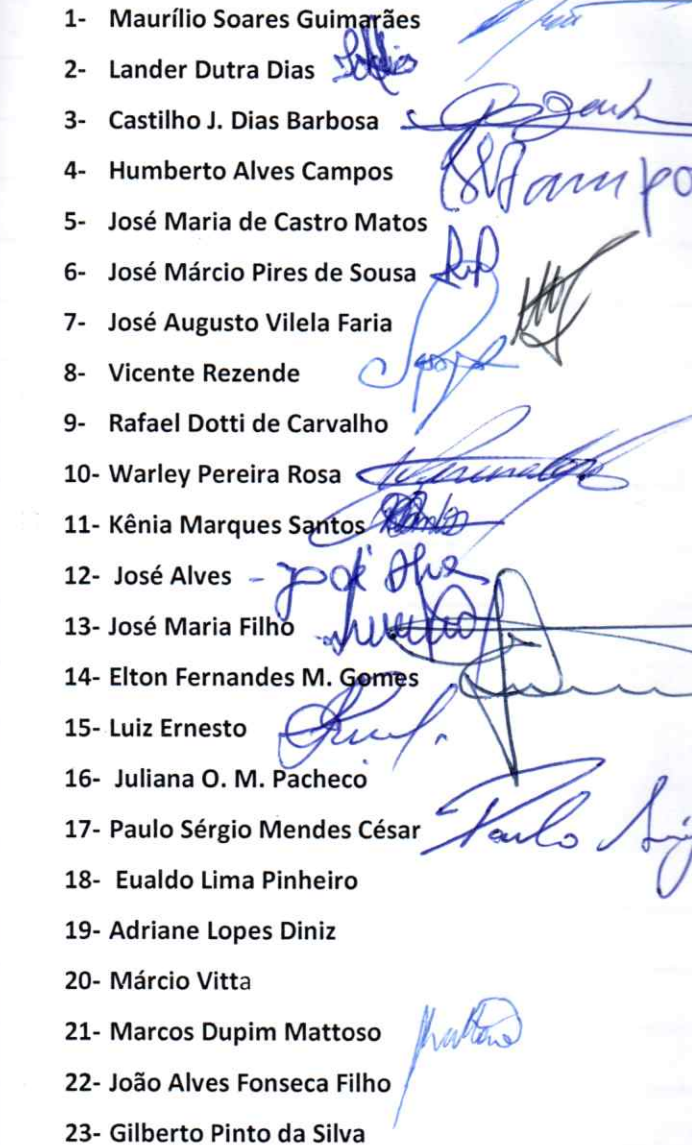 1- Maurílio Soares Guimarães
2- Lander Dutra Dias
3- Castilho J. Dias Barbosa
4- Humberto Alves Campos
5- José Maria de Castro Matos
6- José Márcio Pires de Sousa
7- José Augusto Vilela Faria
8- Vicente Rezende
9- Rafael Dotti de Carvalho
10- Warley Pereira Rosa
11- Kênia Marques Santos
12- José Alves - José Alves
13- José Maria Filho
14- Elton Fernandes M. Gomes
15- Luiz Ernesto
16- Juliana O. M. Pacheco
17- Paulo Sérgio Mendes César Paulo
18- Eualdo Lima Pinheiro
19- Adriane Lopes Diniz
20- Márcio Vitta
21- Marcos Dupim Mattoso
22- João Alves Fonseca Filho
23- Gilberto Pinto da Silva